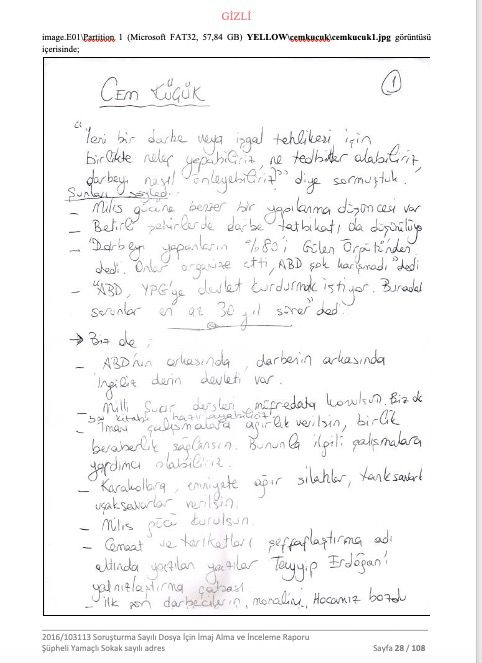 GİZLİ
image.E01\Partition 1 (Microsoft FAT32, 57,84 GB) YELLOW\cemkucuk\cemkucuk1.jpg görüntüsü
içerisinde;
CEM KÜÇÜK
1
"Yeni bir darbe veya işgal tehlikesi için
birlikte neler yapabiliriz, ne tedbirler alabiliriz,
darbeyi nasıl önleyebiliriz?" diye sormuştuk.
Şunları söyledi
- Milis gücüne benzer bir yapılanma düşüncesi var
- Belirli şehirlerde darbe tatbikatı da düşünülüyor
- "Darbeyi yapanların %80'i Gülen Örgütü'nden
dedi. Onlar organize etti, ABD çok karışmadı" dedi
- "ABD, YPG'ye devlet kurdurmak istiyor. Buradaki
sorunlar en az 30 yıl sürer" dedi.
→ Biz de;
- ABD'nin arkasında, darbenin arkasında
İngiliz derin devleti var.
- Milli Şuur dersleri müfredata konulsun. Biz de
bu kitabı hazırlayabiliriz
- İmani çalışmalara ağırlık verilsin, birlik
beraberlik sağlansın. Bununla ilgili çalışmalara
yardımcı olabiliriz.
- Karakollara, emniyete ağır silahlar, tanksavar
uçaksavarlar verilsin.
- Milis gücü kurulsun.
- Cemaat ve tarikatları şeffaflaştırma adı
altında yazılan yazılar Tayyip Erdoğan'ı
yalnızlaştırma çabası
- İlk gün darbecilerin, moralini, Hocamız bozdu
2016/103113 Soruşturma Sayılı Dosya İçin İmaj Alma ve İnceleme Raporu
Şüpheli Yamaçlı Sokak sayılı adres
Sayfa 28 / 108